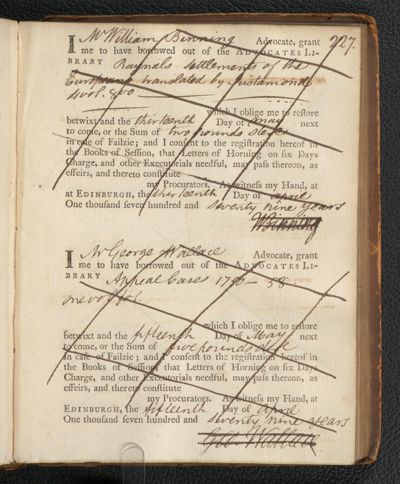 227.
I Mr William Binning Advocate, grant
me to have borrowed out of the ADVOCATES LI-
BRARY Raynals Settlements of the
Europeans translated by Justamond
4 vol. 8vo
which I oblige me to restore
betwixt and the thirteenth Day of May next
to come, or the Sum of two pounds Sterl
in case of Failzie; and I consent to the registration hereof in
the Books of Session, that Letters of Horning on six Days
Charge, and other Executorials needful, may pass thereon, as
effeirs, and thereto constitute
my Procurators. As witness my Hand, at
at EDINBURGH, the thirteenth Day of April
One thousand seven hundred and seventy nine years
W Binning
I Mr George Wallace Advocate, grant
me to have borrowed out of the ADVOCATES LI-
BRARY Appeal Cases 17 - 58
one vol fol.
which I oblige me to restore
betwixt and the fifteenth Day of May next
to come, or the Sum of five pounds
in case of Failzie; and I consent to the registration hereof in
the Books of Session, that Letters of Horning on six Days
Charge, and other Executorials needful, may pass thereon, as
effeirs, and thereto constitute
my Procurators. As witness my Hand, at
EDINBURGH, the fifteenth Day of April
One thousand seven hundred and seventy nine years
Geo. Wallace